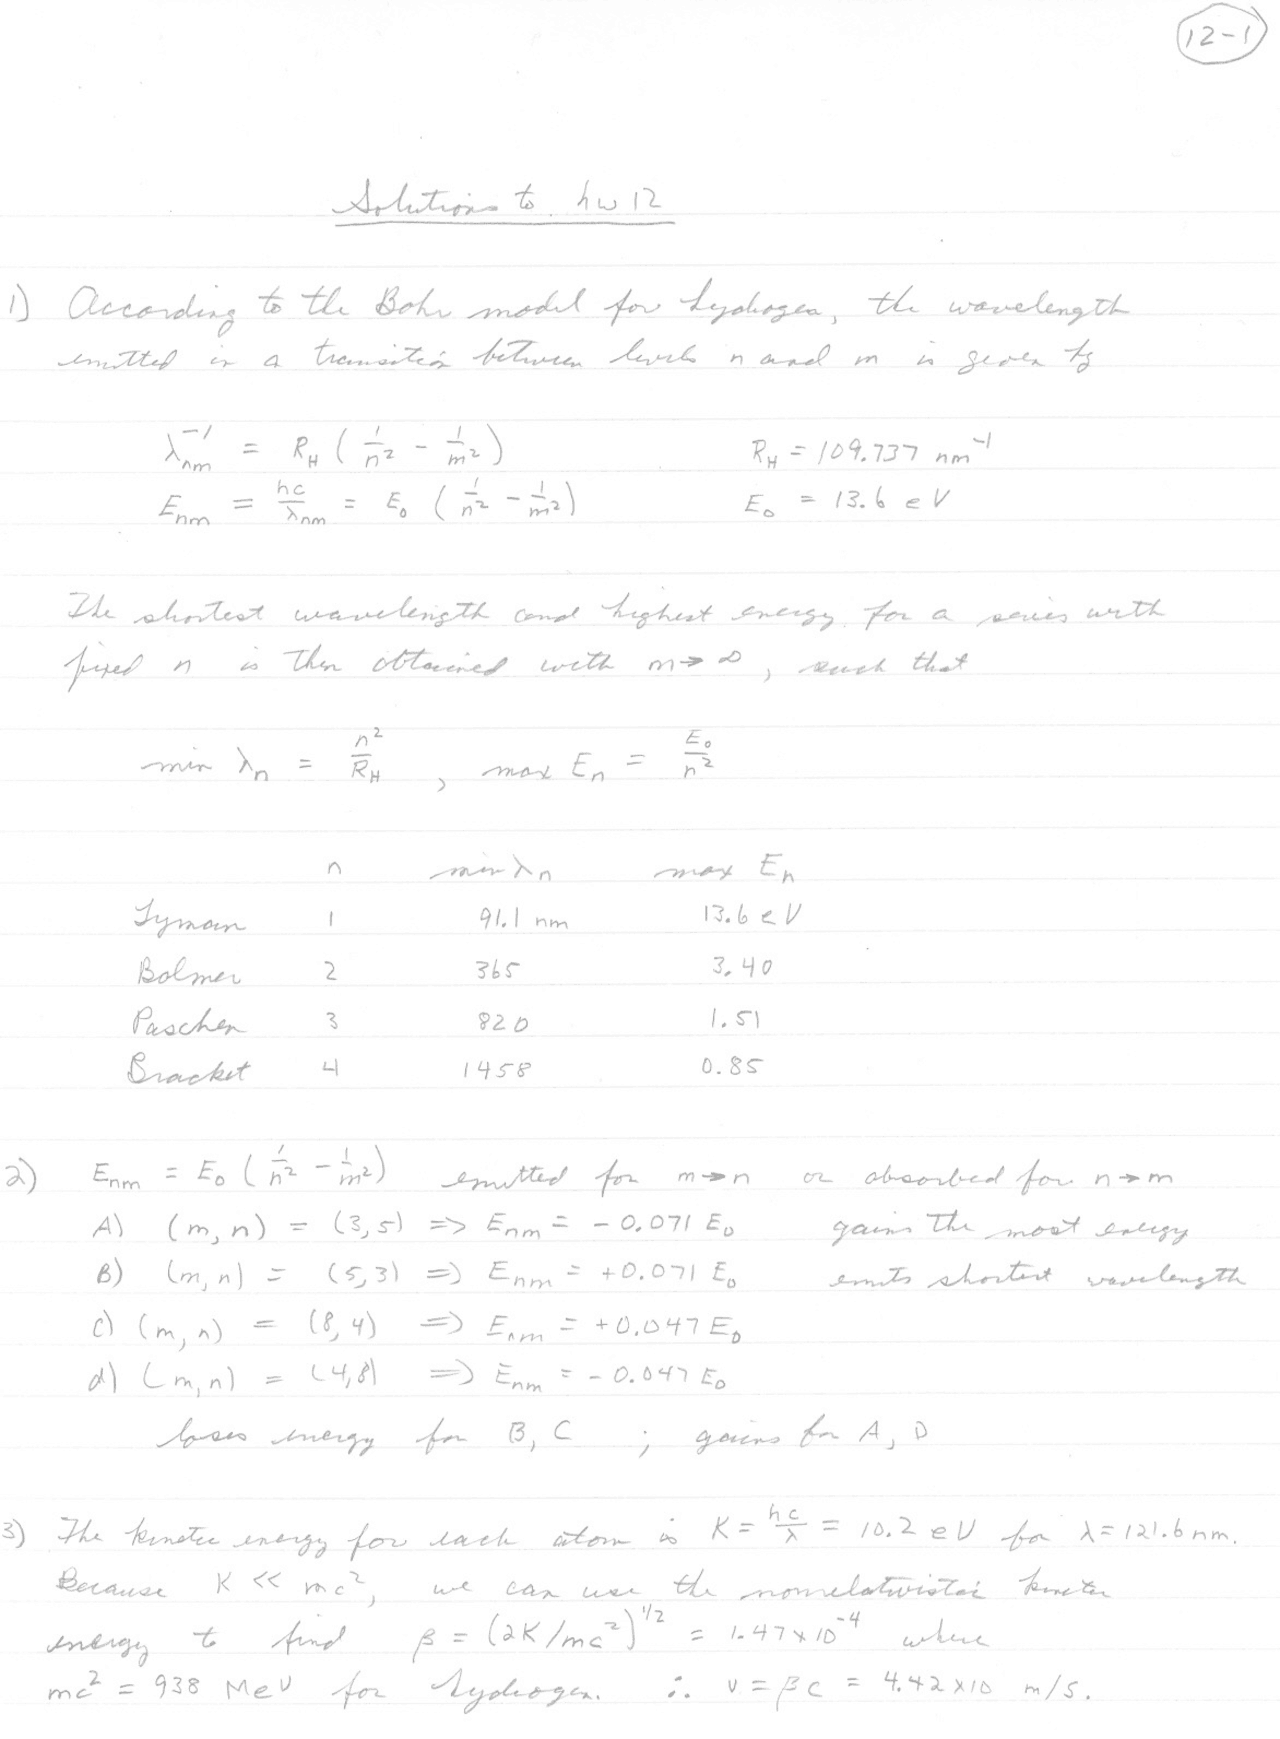 12-1
Solutions to hw 12
1) According to the Bohr model for hydrogen, the wavelength
emitted in a transition between levels n and m is given by
λnm⁻¹ = R_H (1/n² - 1/m²)    R_H = 109.737 nm⁻¹
Enm = hc/λnm = E₀ (1/n² - 1/m²)    E₀ = 13.6 eV
The shortest wavelength and highest energy for a series with
fixed n is then obtained with m→∞, such that
min λn = n²/R_H , max En = E₀/n²
n    min λn    max En
Lyman    1    91.1 nm    13.6 eV
Balmer    2    365    3.40
Paschen    3    820    1.51
Bracket    4    1458    0.85
2) Enm = E₀ (1/n² - 1/m²) emitted for m→n or absorbed for n→m
A) (m, n) = (3,5) => Enm = - 0.071 E₀    gains the most energy
B) (m, n) = (5,3) => Enm = +0.071 E₀    emits shortest wavelength
c) (m, n) = (8,4) => Enm = +0.047 E₀
d) (m, n) = (4,8) => Enm = - 0.047 E₀
loses energy for B, C ; gains for A, D
3) The kinetic energy for each atom is K = hc/λ = 10.2 eV for λ = 121.6 nm.
Because K << mc², we can use the nonrelativistic kinetic
energy to find β = (2K/mc²)^1/2 = 1.47×10⁻⁴ where
mc² = 938 MeV for hydrogen. ∴ v = βc = 4.42×10 m/s.